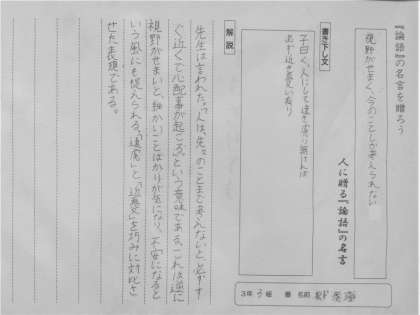 『論語』の名言を贈ろう
視野がせまく、今のことしか考えられない
人に贈る『論語』の名言
書き下し文
子曰く、人にして遠き慮り無ければ
必ず近き憂い有り
3年 組 番 名前
解説
先生は言われた。「人は、先々のことまで考えないと、必ずす
ぐ近くで心配事が起こる。」という意味である。これは逆に
視野がせまいと、細かいことばかりが気になり、不安になると
いう風にも捉えられる。「遠慮」と「近憂」を巧みに対比さ
せた表現である。